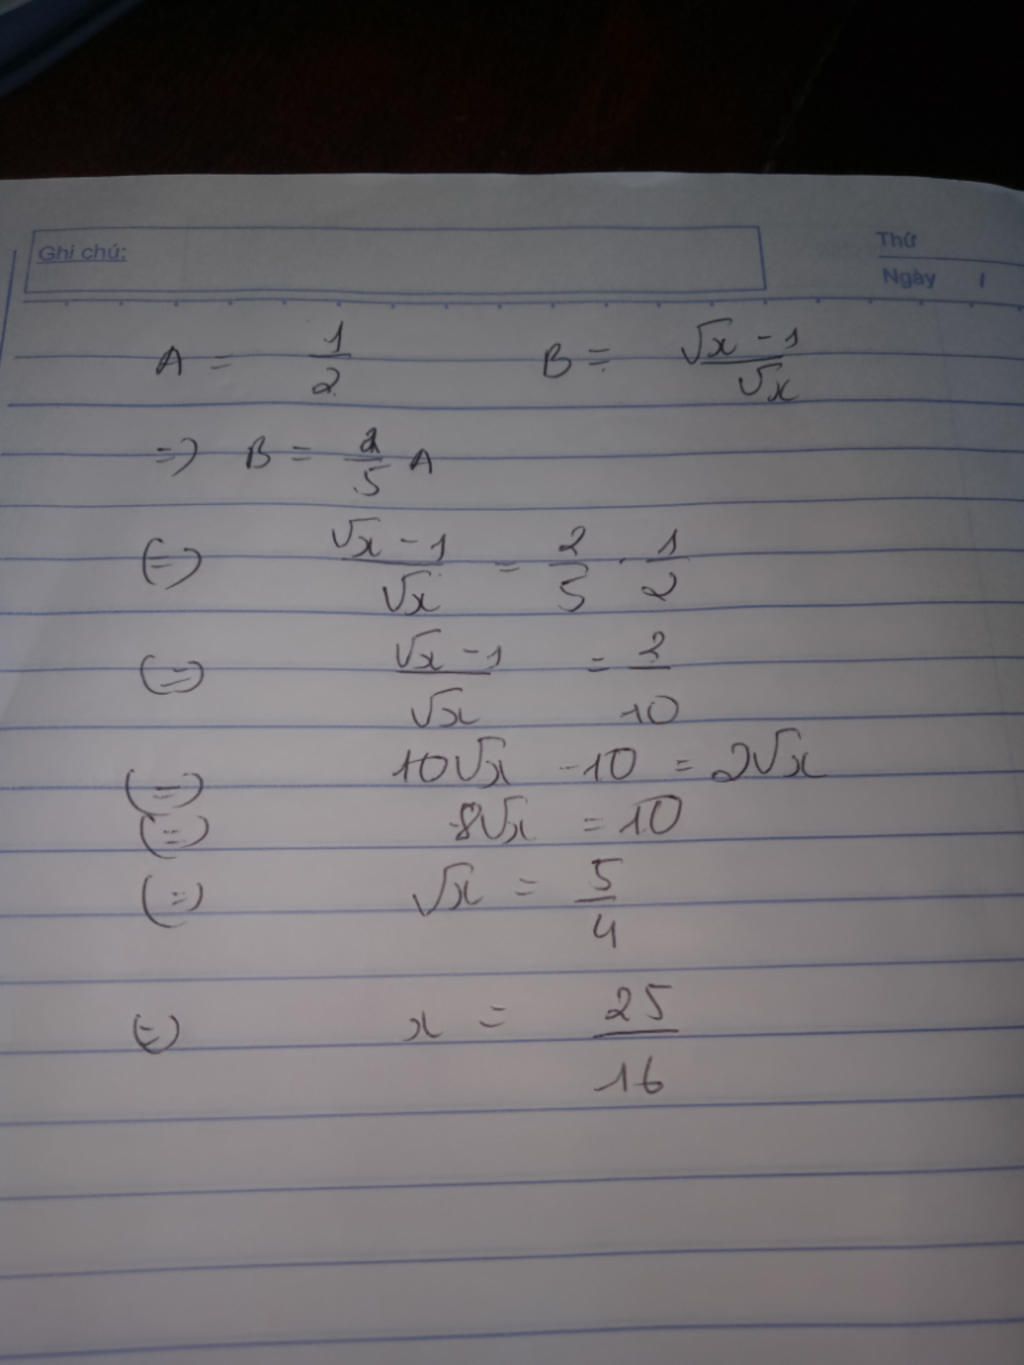 Ghi chú:
Thứ
Ngày /
A = 1/2 B = √x - 1/√x
=> B = 2/5 A
(=) √x - 1/√x = 2/5 . 1/2
(=) √x - 1/√x = 2/10
(=) 10√x - 10 = 2√x
(=) 8√x = 10
(=) √x = 5/4
(=) x = 25/16